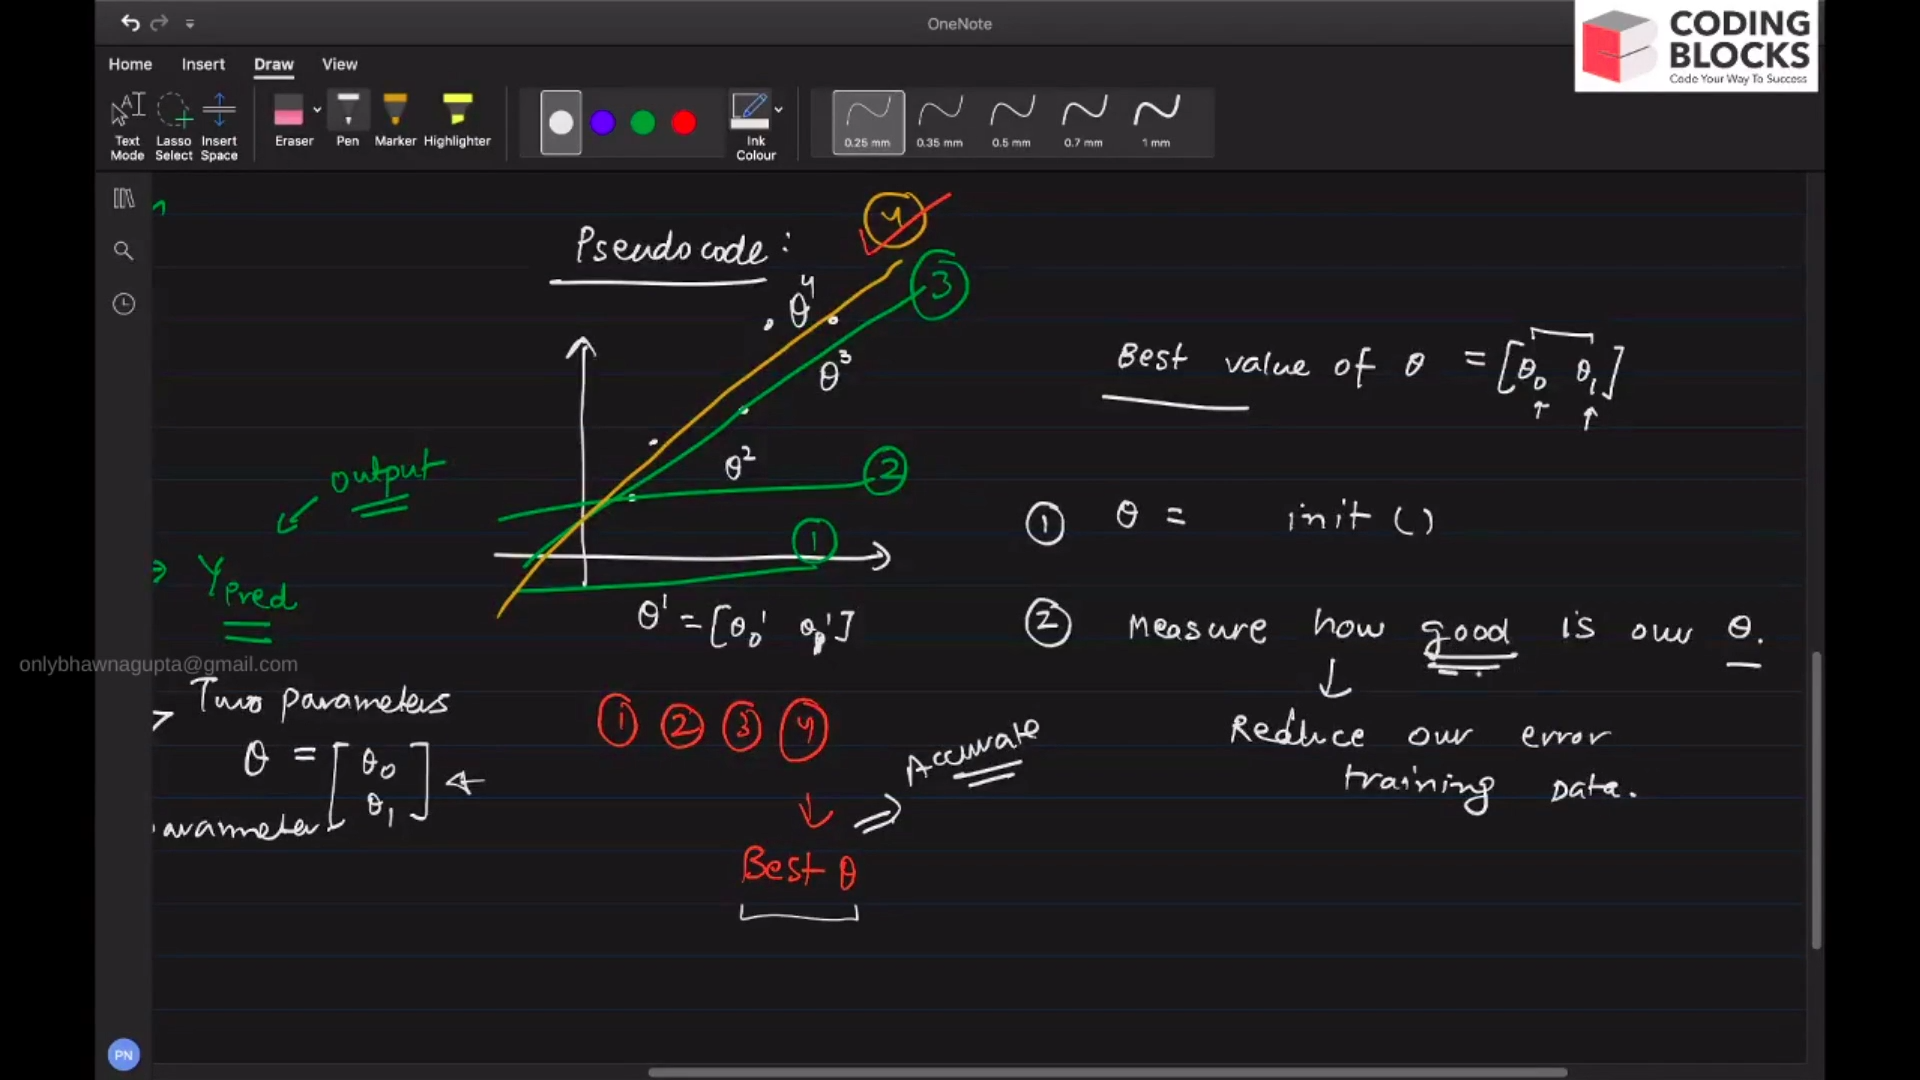 OneNote
CODING
BLOCKS
Code Your Way To Success
Home Insert Draw View
Text Mode
Lasso Select
Insert Space
Eraser
Pen
Marker
Highlighter
Ink Colour
0.25 mm
0.35 mm
0.5 mm
0.7 mm
1 mm
Pseudocode:
4
3
θ⁴
θ³
θ²
2
1
θ¹ = [θ₀¹ θ₁¹]
output
Ypred
onlybhawnagupta@gmail.com
Two parameters
θ = [θ₀
θ₁]
arameter
1 2 3 4
Accurate
Best θ
Best value of θ = [θ₀ θ₁]
1 θ = init ()
2 Measure how good is our θ.
Reduce our error
training Data.
PN